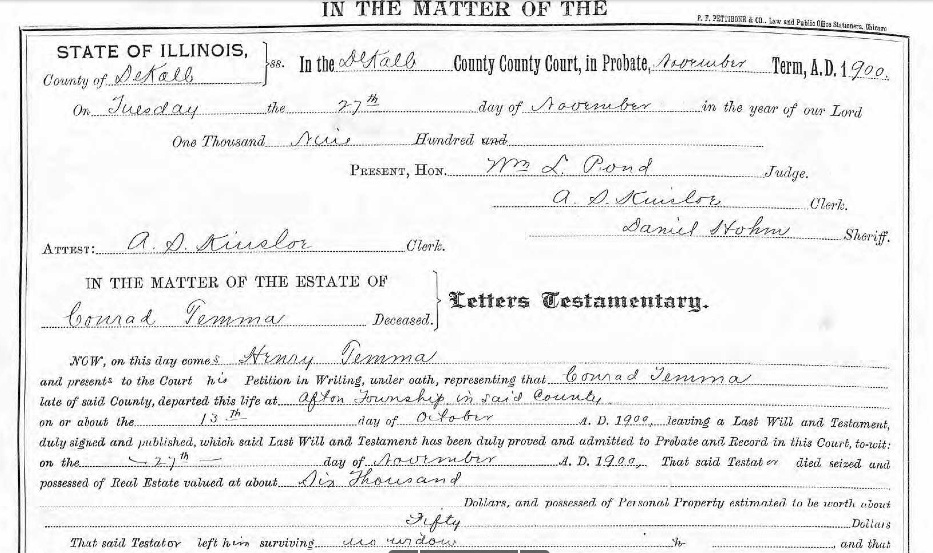 IN THE MATTER OF THE
P. F. PETTIBONE & CO., Law and Public Office Stationers, Chicago
STATE OF ILLINOIS,
County of DeKalb } ss. In the DeKalb County County Court, in Probate, November Term, A.D. 1900.
On Tuesday the 27th day of November in the year of our Lord
One Thousand Nine Hundred and
PRESENT, HON. Wm L. Pond Judge.
A. S. Kinsloe Clerk.
Daniel Hohm Sheriff.
ATTEST: A. S. Kinsloe Clerk.
IN THE MATTER OF THE ESTATE OF
Conrad Temma Deceased. } Letters Testamentary.
NOW, on this day comes Henry Temma
and presents to the Court his Petition in Writing, under oath, representing that Conrad Temma
late of said County, departed this life at Afton Township in said County
on or about the 13th day of October A. D. 1900, leaving a Last Will and Testament,
duly signed and published, which said Last Will and Testament has been duly proved and admitted to Probate and Record in this Court, to-wit:
on the 27th day of November A. D. 1900, That said Testator died seized and
possessed of Real Estate valued at about Six Thousand
Dollars, and possessed of Personal Property estimated to be worth about
Fifty Dollars
That said Testator left him surviving no widow , and that